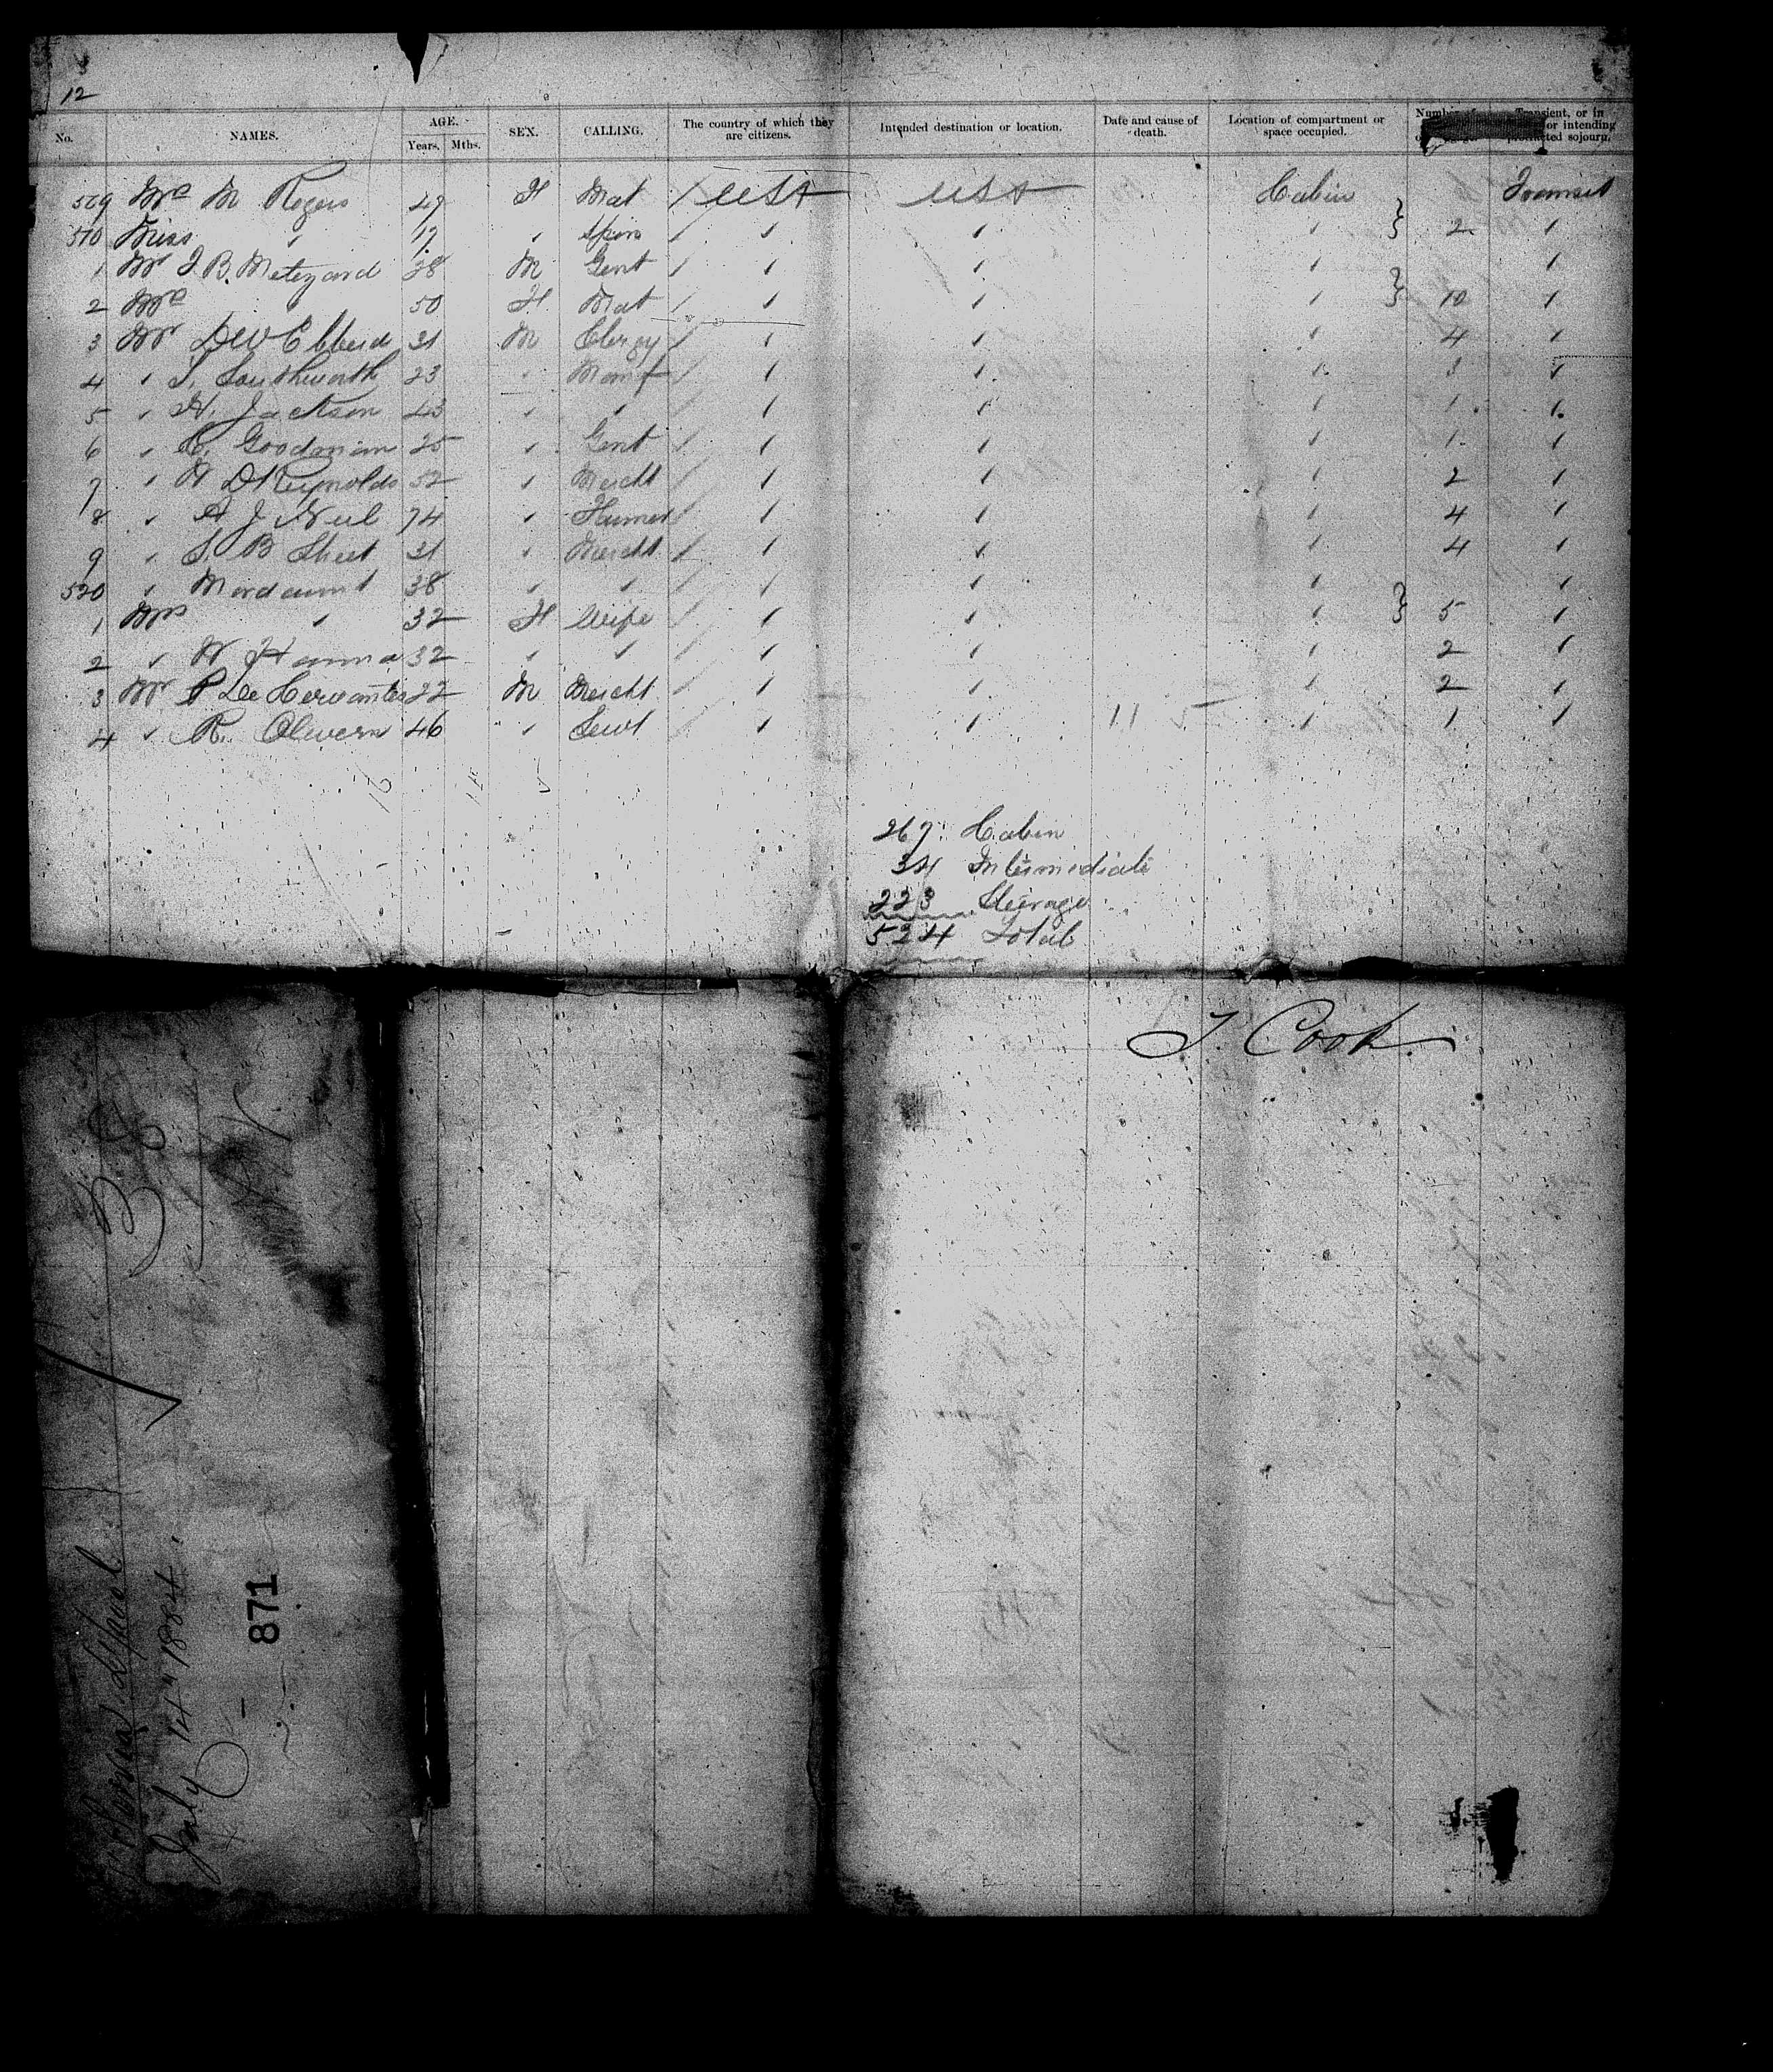 12
No. NAMES. AGE. Years. Mths. SEX. CALLING. The country of which they are citizens. Intended destination or location. Date and cause of death. Location of compartment or space occupied. Transient, or in or intending sojourn.
509 Mrs M Rogers 49 F Mat USA USA Cabin Transit
510 Miss " 19 " Spin " " " 2 "
1 Mr J. B. Meteyard 38 M Gent " " " "
2 Mrs 50 F Mat " " " 10 "
3 Mr 31 M Clergy " " " 4 "
4 " S. Southworth 23 " Manf " " " 3 "
5 " H. Jackson 43 " " " " " 1 "
6 " C. Goodman 25 " Gent " " " 1 "
7 " H D Reynolds 52 " Mercht " " " 2 "
8 " A J Neil 74 " " " " 4 "
9 " S. B Street 31 " Mercht " " " 4 "
520 " Mordaunt 38 " " " " " "
1 Mrs " 32 F Wife " " " 5 "
2 " W Hanna 32 " " " " " 2 "
3 Mr P Lee Cervantes 22 M Mercht " " " 2 "
4 " R. Olivern 46 " " " " 1 "
267 Cabin
34 Intermediate
223 Steerage
524 Total
T. Cook
Servia L'pool
July 14" 1884
871